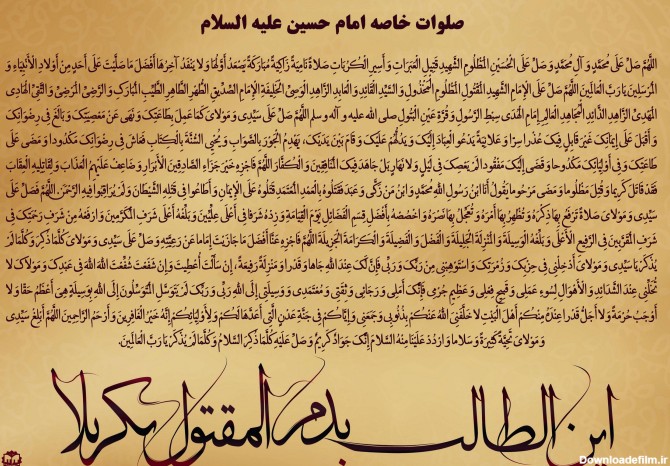 صلوات خاصه امام حسین علیه السلام
اللَّهُمَّ صَلِّ عَلَى مُحَمَّدٍ وَ آلِ مُحَمَّدٍ وَ صَلِّ عَلَى الْحُسَيْنِ الْمَظْلُومِ الشَّهِيدِ قَتِيلِ الْعَبَرَاتِ وَ أَسِيرِ الْكُرُبَاتِ صَلَاةً نَامِيَةً زَاكِيَةً مُبَارَكَةً يَصْعَدُ أَوَّلُهَا وَ لَا يَنْفَدُ آخِرُهَا أَفْضَلَ مَا صَلَّيْتَ عَلَى أَحَدٍ مِنْ أَوْلَادِ الْأَنْبِيَاءِ وَ
الْمُرْسَلِينَ يَا رَبَّ الْعَالَمِينَ اللَّهُمَّ صَلِّ عَلَى الْإِمَامِ الشَّهِيدِ الْمَقْتُولِ الْمَظْلُومِ الْمَخْذُولِ وَ السَّيِّدِ الْقَائِدِ وَ الْعَابِدِ الزَّاهِدِ الْوَصِيِّ الْخَلِيفَةِ الْإِمَامِ الصِّدِّيقِ الطُّهْرِ الطَّاهِرِ الطَّيِّبِ الْمُبَارَكِ وَ الرَّضِيِّ الْمَرْضِيِّ وَ التَّقِيِّ الْهَادِي
الْمَهْدِيِّ الزَّاهِدِ الذَّائِدِ الْمُجَاهِدِ الْعَالِمِ إِمَامِ الْهُدَى سِبْطِ الرَّسُولِ وَ قُرَّةِ عَيْنِ الْبَتُولِ صلی الله علیه و آله و سلم اللَّهُمَّ صَلِّ عَلَى سَيِّدِي وَ مَوْلَايَ كَمَا عَمِلَ بِطَاعَتِكَ وَ نَهَى عَنْ مَعْصِيَتِكَ وَ بَالَغَ فِي رِضْوَانِكَ
وَ أَقْبَلَ عَلَى إِيمَانِكَ غَيْرَ قَابِلٍ فِيكَ عُذْراً سِرّاً وَ عَلَانِيَةً يَدْعُو الْعِبَادَ إِلَيْكَ وَ يَدُلُّهُمْ عَلَيْكَ وَ قَامَ بَيْنَ يَدَيْكَ، يَهْدِمُ الْجَوْرَ بِالصَّوَابِ وَ يُحْيِي السُّنَّةَ بِالْكِتَابِ فَعَاشَ فِي رِضْوَانِكَ مَكْدُوداً وَ مَضَى عَلَى
طَاعَتِكَ وَ فِي أَوْلِيَائِكَ مَكْدُوحاً وَ قَضَى إِلَيْكَ مَفْقُوداً لَمْ يَعْصِكَ فِي لَيْلٍ وَ لَا نَهَارٍ بَلْ جَاهَدَ فِيكَ الْمُنَافِقِينَ وَ الْكُفَّارَ اللَّهُمَّ فَاجْزِهِ خَيْرَ جَزَاءِ الصَّادِقِينَ الْأَبْرَارِ وَ ضَاعِفْ عَلَيْهِمُ الْعَذَابَ وَ لِقَاتِلِيهِ الْعِقَابَ
فَقَدْ قَاتَلَ كَرِيماً وَ قُتِلَ مَظْلُوماً وَ مَضَى مَرْحُوماً يَقُولُ أَنَا ابْنُ رَسُولِ اللَّهِ مُحَمَّدٍ وَ ابْنُ مَنْ زَكَّى وَ عَبَدَ فَقَتَلُوهُ بِالْعَمْدِ الْمُعْتَمَدِ قَتَلُوهُ عَلَى الْإِيمَانِ وَ أَطَاعُوا فِي قَتْلِهِ الشَّيْطَانَ وَ لَمْ يُرَاقِبُوا فِيهِ الرَّحْمَنَ. اللَّهُمَّ فَصَلِّ عَلَى
سَيِّدِي وَ مَوْلَايَ صَلَاةً تَرْفَعُ بِهَا ذِكْرَهُ وَ تُظْهِرُ بِهَا أَمْرَهُ وَ تُعَجِّلُ بِهَا نَصْرَهُ وَ اخْصُصْهُ بِأَفْضَلِ قِسَمِ الْفَضَائِلِ يَوْمَ الْقِيَامَةِ وَ زِدْهُ شَرَفاً فِي أَعْلَى عِلِّيِّينَ وَ بَلِّغْهُ أَعْلَى شَرَفِ الْمُكَرَّمِينَ وَ ارْفَعْهُ مِنْ شَرَفِ رَحْمَتِكَ فِي
شَرَفِ الْمُقَرَّبِينَ فِي الرَّفِيعِ الْأَعْلَى وَ بَلِّغْهُ الْوَسِيلَةَ وَ الْمَنْزِلَةَ الْجَلِيلَةَ وَ الْفَضْلَ وَ الْفَضِيلَةَ وَ الْكَرَامَةَ الْجَزِيلَةَ اللَّهُمَّ فَاجْزِهِ عَنَّا أَفْضَلَ مَا جَازَيْتَ إِمَاماً عَنْ رَعِيَّتِهِ وَ صَلِّ عَلَى سَيِّدِي وَ مَوْلَايَ كُلَّمَا ذُكِرَ وَ كُلَّمَا لَمْ
يُذْكَرْ يَا سَيِّدِي وَ مَوْلَايَ أَدْخِلْنِي فِي حِزْبِكَ وَ زُمْرَتِكَ وَ اسْتَوْهِبْنِي مِنْ رَبِّكَ وَ رَبِّي فَإِنَّ لَكَ عِنْدَ اللَّهِ جَاهاً وَ قَدْراً وَ مَنْزِلَةً رَفِيعَةً، إِنْ سَأَلْتَ أُعْطِيتَ وَ إِنْ شَفَعْتَ شُفِّعْتَ اللَّهَ اللَّهَ فِي عَبْدِكَ وَ مَوْلَاكَ لَا
تُخَلِّنِي عِنْدَ الشَّدَائِدِ وَ الْأَهْوَالِ لِسُوءِ عَمَلِي وَ قَبِيحِ فِعْلِي وَ عَظِيمِ جُرْمِي فَإِنَّكَ أَمَلِي وَ رَجَائِي وَ ثِقَتِي وَ مُعْتَمَدِي وَ وَسِيلَتِي إِلَى اللَّهِ رَبِّي وَ رَبِّكَ لَمْ يَتَوَسَّلِ الْمُتَوَسِّلُونَ إِلَى اللَّهِ بِوَسِيلَةٍ هِيَ أَعْظَمُ حَقّاً وَ لَا
أَوْجَبُ حُرْمَةً وَ لَا أَجَلُّ قَدْراً عِنْدَهُ مِنْكُمْ أَهْلَ الْبَيْتِ لَا خَلَّفَنِيَ اللَّهُ عَنْكُمْ بِذُنُوبِي وَ جَمَعَنِي وَ إِيَّاكُمْ فِي جَنَّةِ عَدْنٍ الَّتِي أَعَدَّهَا لَكُمْ وَ لِأَوْلِيَائِكُمْ إِنَّهُ خَيْرُ الْغَافِرِينَ وَ أَرْحَمُ الرَّاحِمِينَ اللَّهُمَّ أَبْلِغْ سَيِّدِي
وَ مَوْلَايَ تَحِيَّةً كَثِيرَةً وَ سَلَاماً وَ ارْدُدْ عَلَيْنَا مِنْهُ السَّلَامَ إِنَّكَ جَوَادٌ كَرِيمٌ وَ صَلِّ عَلَيْهِ كُلَّمَا ذُكِرَ السَّلَامُ وَ كُلَّمَا لَمْ يُذْكَرْ يَا رَبَّ الْعَالَمِينَ.
این الطالب بدم المقتول بکربلا
Downloadefilm.ir